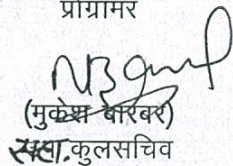 प्रोग्रामर
(मुकेश बारबर)
सहा. कुलसचिव